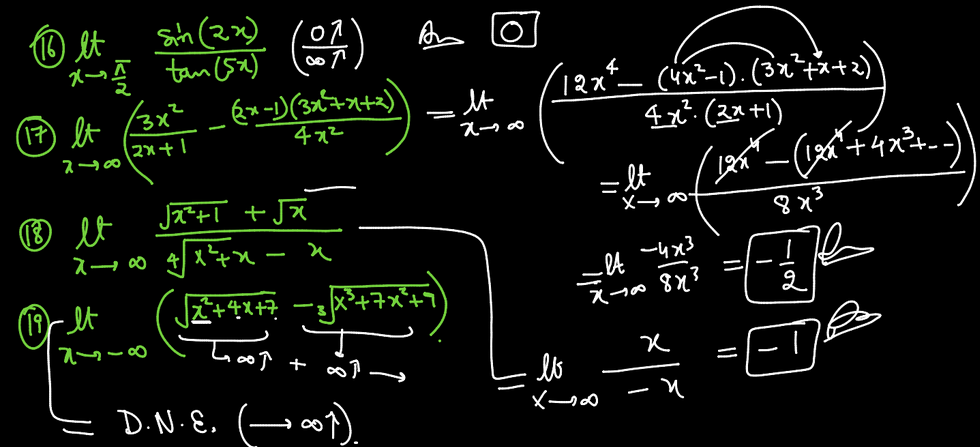 ⑯ lt x→π/2 sin(2x)/tan(5x) (0↑/∞↑) Ans 0
⑰ lt x→∞ (3x²/(2x+1) − (2x−1)(3x²+x+2)/4x²) = lt x→∞ (12x⁴ − (4x²−1)·(3x²+x+2) / 4x²·(2x+1))
= lt x→∞ (12x⁴ − (12x⁴+4x³+--) / 8x³)
= lt x→∞ −4x³/8x³ = −1/2
⑱ lt x→∞ (√(x²+1) + √x) / (⁴√(x²+x) − x)
= lt x→∞ x/−x = −1
⑲ lt x→−∞ (√(x²+4x+7) − ³√(x³+7x²+9))
↳∞↑ + ∞↑ →
= D.N.E. (→∞↑).